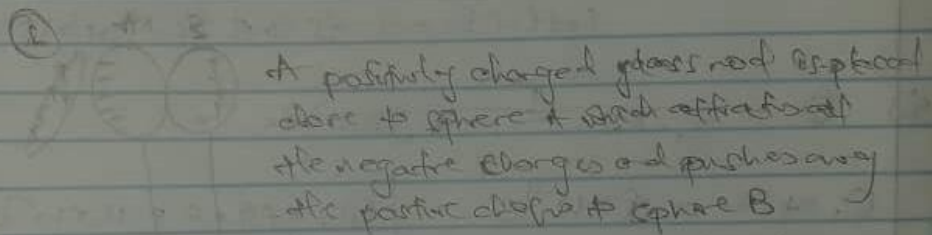 A B
A positively charged glass rod is placed
close to sphere A which attracts all
the negative charges and pushes away
the positive charge to sphere B